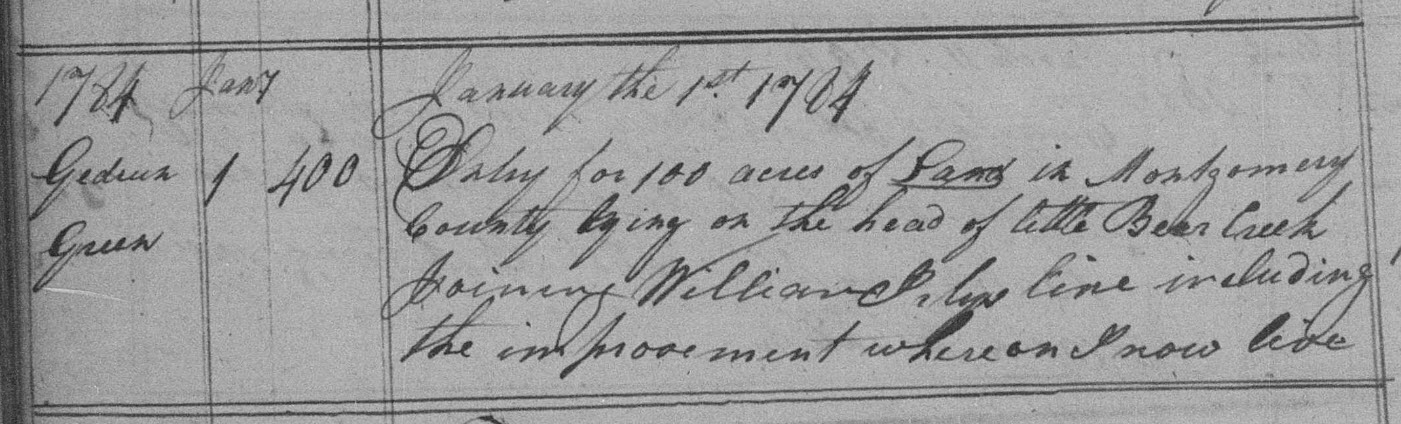 1784 Jany January the 1st 1784
Gedeun 1 400 Entry for 100 acres of Land in Montgomery
County lying on the head of little Bear Creek
Green
Joining William line including
the improvement whereon I now live